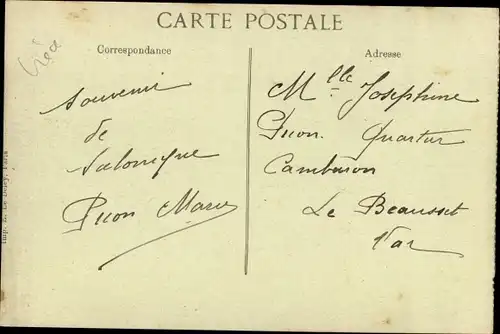 CARTE POSTALE
Correspondance
Adresse
Souvenir
de
Salonique
Pison Marie
Mlle Josephine
Pison. Quartier
Le Beausset
Var